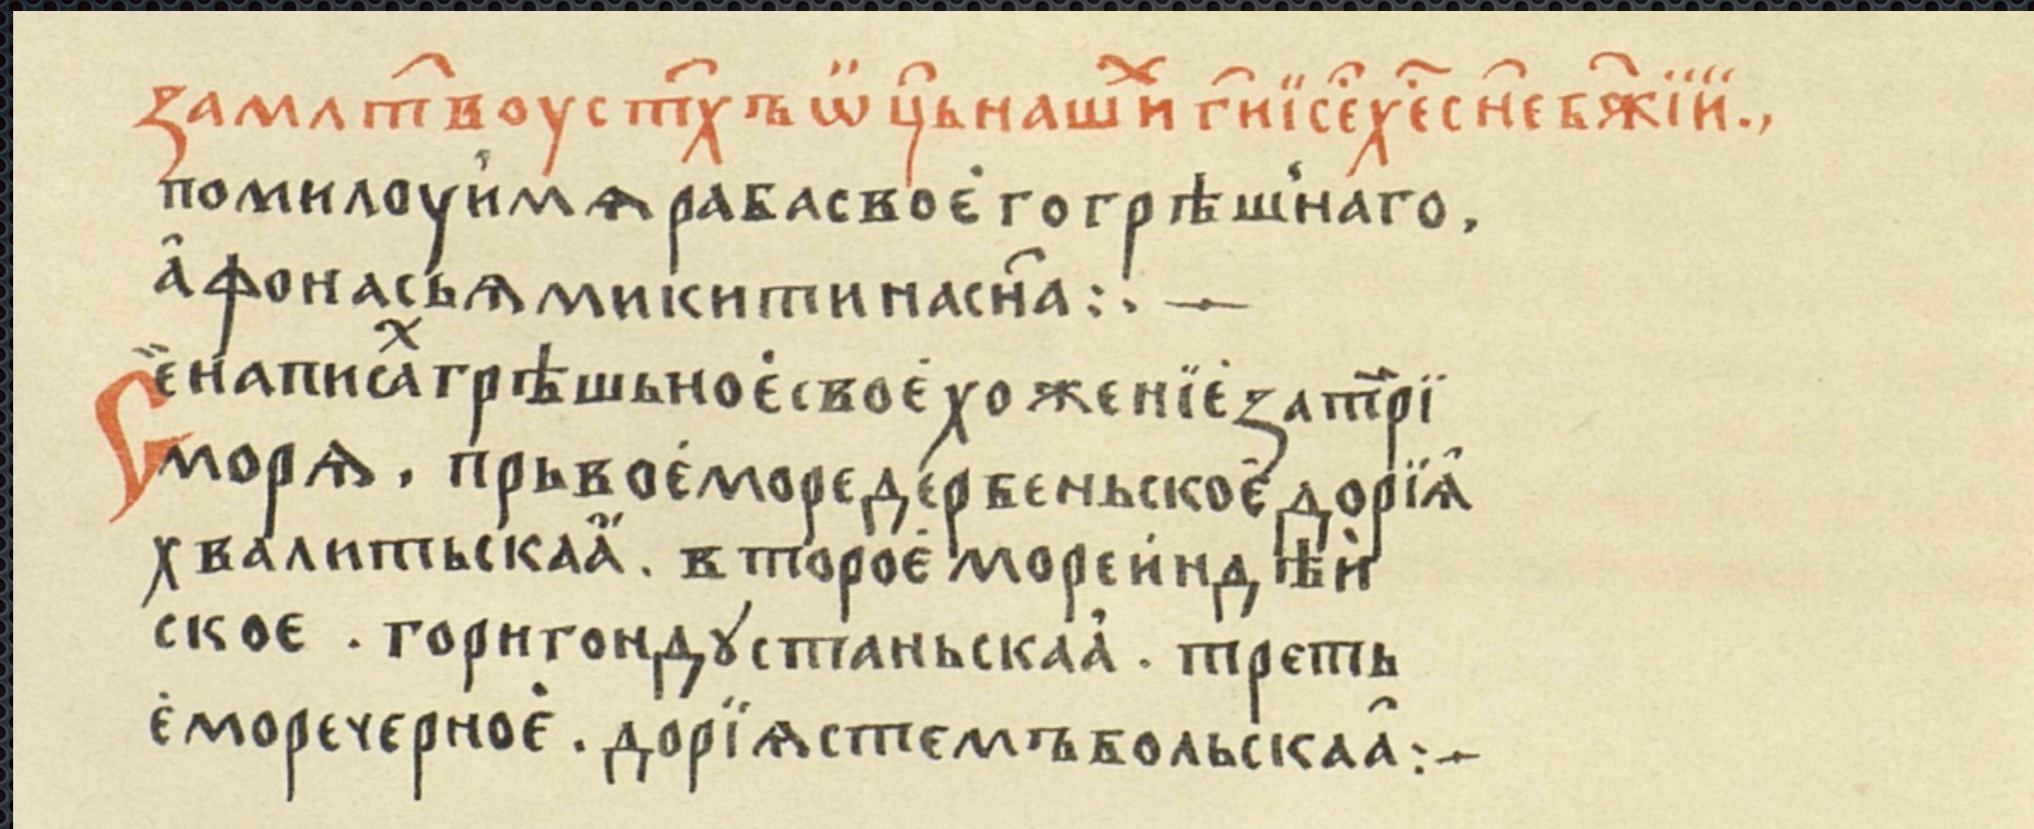 за млт҃воу ст҃хъ ѿц҃ь нашиⷯ ги҃ ісе҃ хе҃ сн҃е бж҃іи.,
помилоуи мѧ раба своего грѣшнаго,
афонасьѧ микитина сн҃а :· —
Се написаⷯ грѣшьное свое хожениіе за трї
морѧ . прьвое море дербеньское дорїѧ
хвалитьскаа . второе море индѣи
ское . горигондꙋстаньскаа . треть
е море черное . дорїѧ стемъбольскаа :-